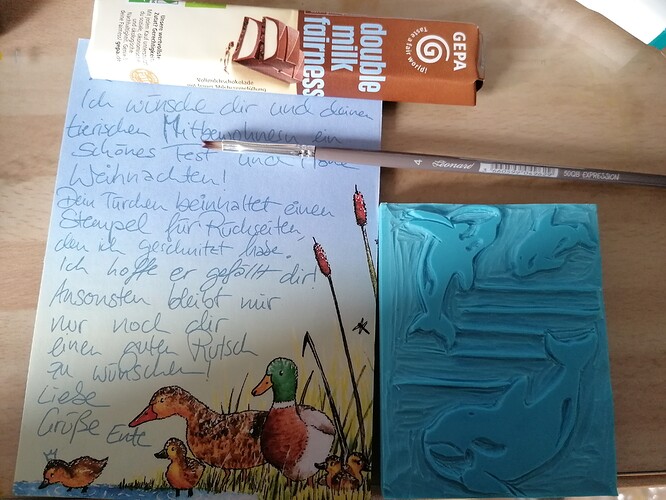 GEPA
Taste a fair world!
double
milk
fairness
Vollmilchschokolade
Ich wünsche dir und deinen
tierischen Mitbewohnern ein
schönes Fest und Frohe
Weihnachten!
Dein Türchen beinhaltet einen
Stempel für Rückseiten,
den ich geschnitzt habe.
Ich hoffe er gefällt dir!
Ansonsten bleibt mir
nur noch dir
einen guten Rutsch
zu wünschen!
Liebe
Grüße Ente
4 Léonard
50QB EXPRESSION